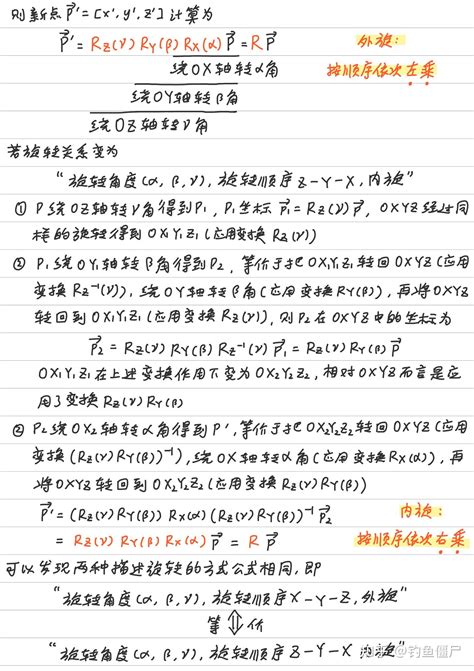 则新点 P⃗'=[x',y',z']计算为
P⃗' = Rz(γ) RY(β) Rx(α) P⃗ = R P⃗ 外旋:
绕OX轴转α角 按顺序依次左乘
绕OY轴转β角
绕OZ轴转γ角
若旋转关系变为
“旋转角度(α, β, γ), 旋转顺序 Z-Y-X, 内旋”
① P绕OZ轴转γ角得到P₁, P₁坐标 P⃗₁ = Rz(γ) P⃗, OXYZ经过同
样的旋转得到OX₁Y₁Z₁(应用变换 Rz(γ))
② P₁绕OY₁轴转β角得到P₂, 等价于把OX₁Y₁Z₁转回OXYZ(应用
变换 Rz⁻¹(γ)), 绕OY轴转β角(应用变换 RY(β)), 再将OXYZ
转回到OX₁Y₁Z₁(应用变换 Rz(γ)), 则P₂在OXYZ中的坐标为
P⃗₂ = Rz(γ) RY(β) Rz⁻¹(γ) P⃗₁ = Rz(γ) RY(β) P⃗
OX₁Y₁Z₁在上述变换作用下变为OX₂Y₂Z₂, 相对OXYZ而言是应
用了变换 Rz(γ) RY(β)
② P₂绕OX₂轴转α角得到P', 等价于把OX₂Y₂Z₂转回OXYZ(应用
变换 (Rz(γ) RY(β))⁻¹), 绕OX轴转α角(应用变换 Rx(α)), 再
将OXYZ转回到OX₂Y₂Z₂(应用变换 Rz(γ) RY(β))
P⃗' = (Rz(γ) RY(β)) Rx(α) (Rz(γ) RY(β))⁻¹ P⃗₂ 内旋:
= Rz(γ) RY(β) Rx(α) P⃗ = R P⃗ 按顺序依次右乘
可以发现两种描述旋转的方式公式相同, 即
“旋转角度(α, β, γ), 旋转顺序 X-Y-Z, 外旋”
等⇕价
“旋转角度(α, β, γ), 旋转顺序 Z-Y-X 内旋”
知乎 @钓鱼僵尸